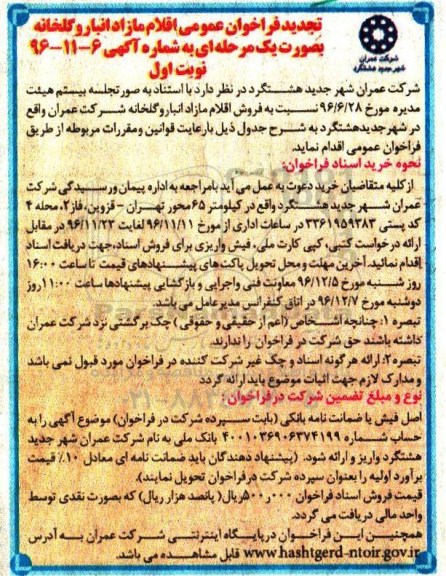 تجدید فراخوان عمومی اقلام مازاد انبار و گلخانه
بصورت یک مرحله ای به شماره آگهی ۶-۱۱-۹۶
نوبت اول
شرکت عمران
شهر جدید هشتگرد
شرکت عمران شهر جدید هشتگرد در نظر دارد با استناد به صورتجلسه بیستم هیئت
مدیره مورخ ۹۶/۶/۲۸ نسبت به فروش اقلام مازاد انبار و گلخانه شرکت عمران واقع
در شهر جدید هشتگرد به شرح جدول ذیل با رعایت قوانین و مقررات مربوطه از طریق
فراخوان عمومی اقدام نماید.
نحوه خرید اسناد فراخوان:
از کلیه متقاضیان خرید دعوت به عمل می آید با مراجعه به اداره پیمان و رسیدگی شرکت
عمران شهر جدید هشتگرد واقع در کیلومتر ۶۵ محور تهران - قزوین، فاز ۲، محله ۴
کد پستی ۳۳۶۱۹۵۹۳۸۳ در ساعات اداری از مورخ ۹۶/۱۱/۱۱ لغایت ۹۶/۱۱/۲۳ در مقابل
ارائه درخواست کتبی، کپی کارت ملی، فیش واریزی برای فروش اسناد، جهت دریافت اسناد
اقدام نمائید. آخرین مهلت و محل تحویل پاکت های پیشنهادهای قیمت تا ساعت ۱۶:۰۰
روز شنبه مورخ ۹۶/۱۲/۵ معاونت فنی و اجرایی و بازگشایی پیشنهادها ساعت ۱۱:۰۰ روز
دوشنبه مورخ ۹۶/۱۲/۷ در اتاق کنفرانس مدیر عامل می باشد.
تبصره ۱: چنانچه اشخاص (اعم از حقیقی و حقوقی) چک برگشتی نزد شرکت عمران
داشته باشند حق شرکت در فراخوان را ندارند.
تبصره ۲: ارائه هر گونه اسناد و چک غیر شرکت کننده در فراخوان مورد قبول نمی باشد
و مدارک لازم جهت اثبات موضوع باید ارائه گردد
نوع و مبلغ تضمین شرکت در فراخوان:
اصل فیش یا ضمانت نامه بانکی (بابت سپرده شرکت در فراخوان) موضوع آگهی را به
حساب شماره ۴۰۰۱۰۳۶۹۰۶۳۷۴۱۹۹ بانک ملی به نام شرکت عمران شهر جدید
هشتگرد واریز و ارائه شود. (پیشنهاد دهندگان باید ضمانت نامه ای معادل ۱۰٪ قیمت
برآورد اولیه را بعنوان سپرده شرکت در فراخوان تحویل نمایند).
قیمت فروش اسناد فراخوان ۵۰۰٫۰۰۰ ریال( پانصد هزار ریال) که بصورت نقدی توسط
واحد مالی دریافت می گردد.
همچنین این فراخوان در پایگاه اینترنتی شرکت عمران به آدرس
www.hashtgerd-ntoir.gov.ir قابل مشاهده می باشد.